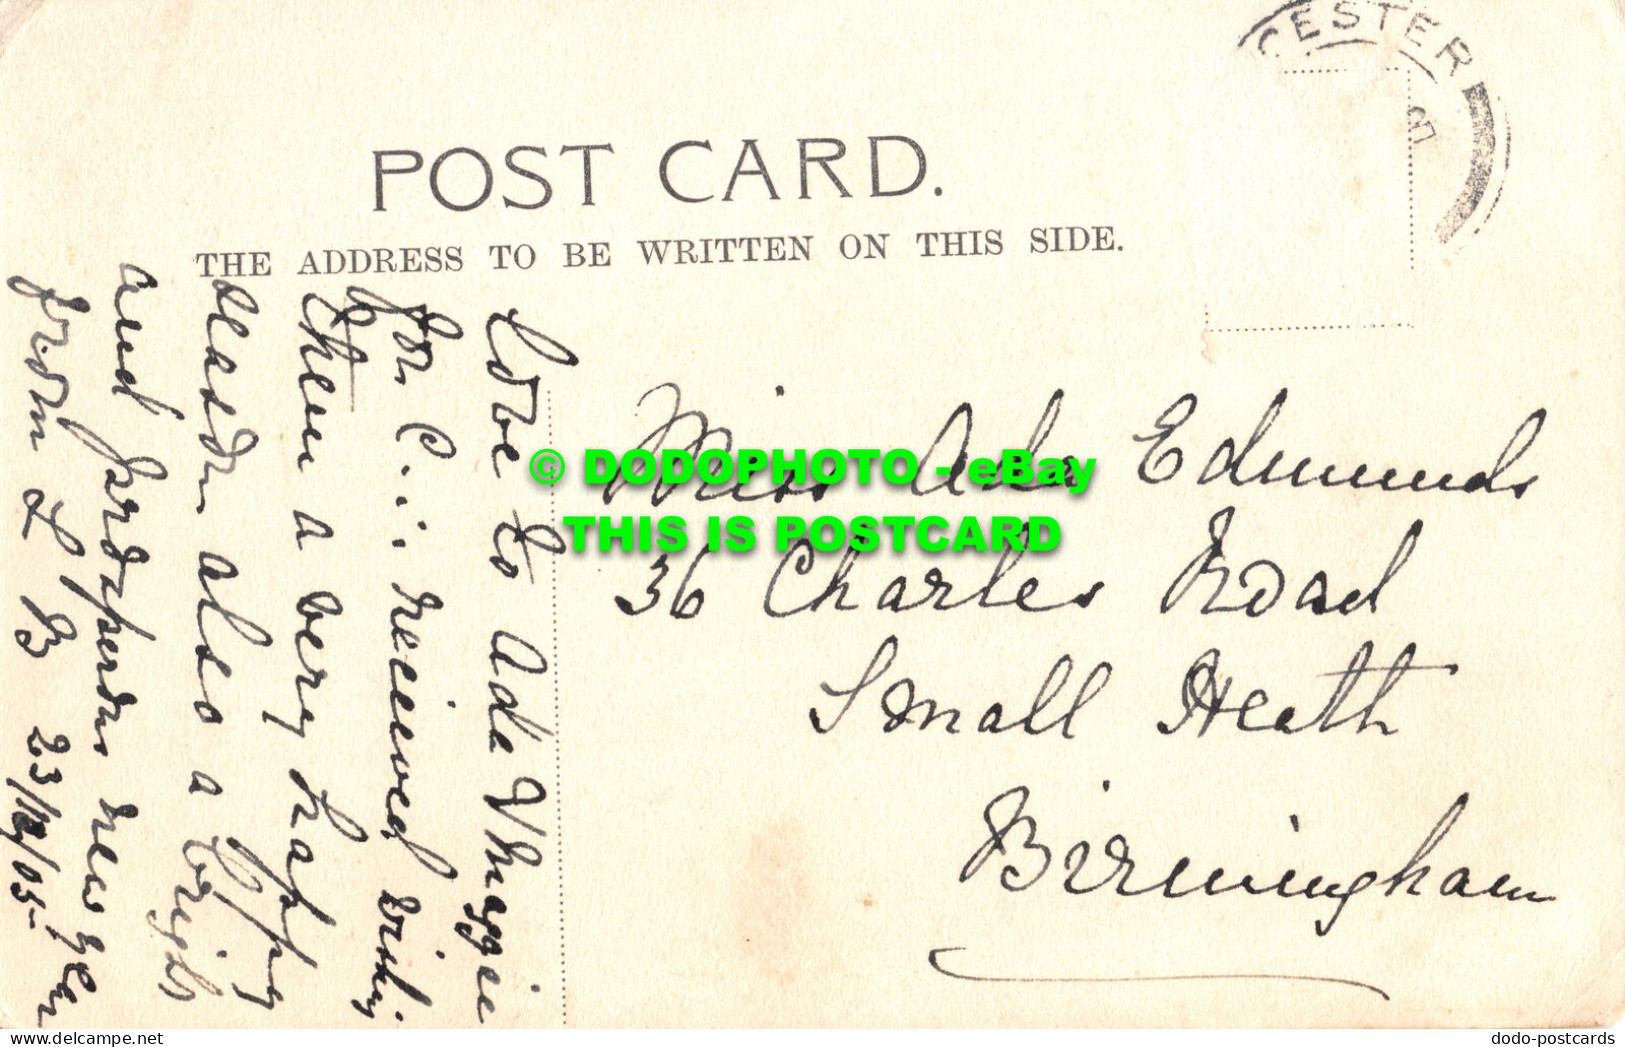 CESTER
POST CARD.
THE ADDRESS TO BE WRITTEN ON THIS SIDE.
Love to Ada & Maggie
for C... received wishing
them a very happy
season also a bright
and prosperous new year
from L B 23/12/05-
Miss Ada Edmunds
36 Charles Road
Small Heath
Birmingham
© DODOPHOTO - eBay
THIS IS POSTCARD
delcampe.net
dodo-postcards